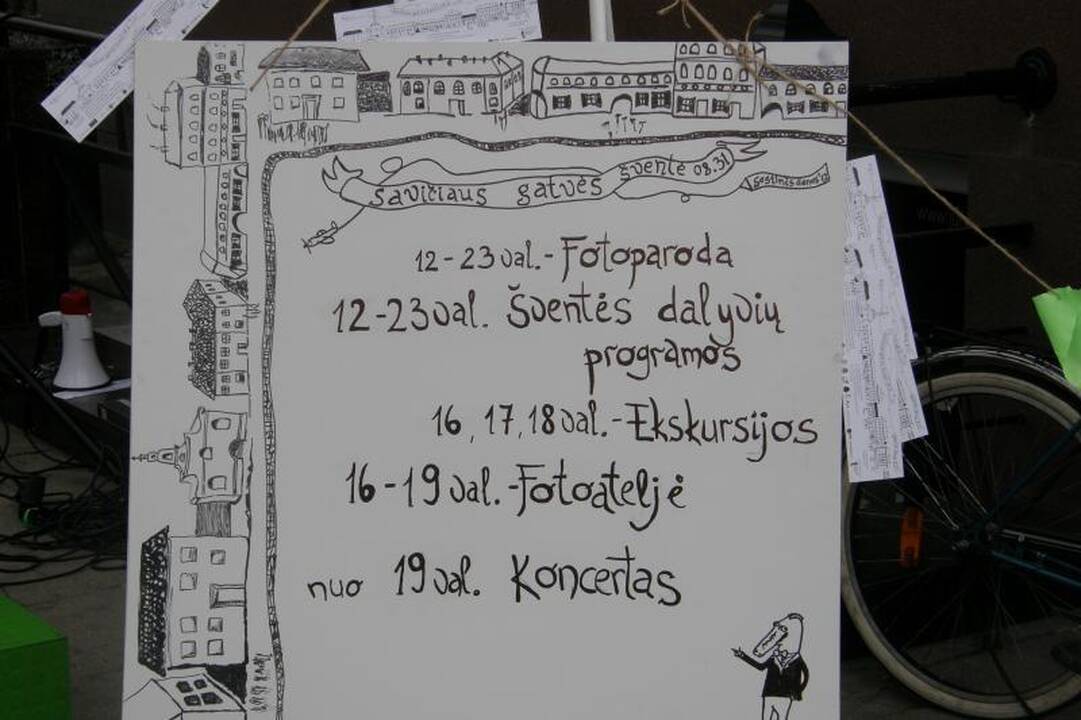 Savičiaus gatvės šventė 08.31
Sostinės dienos'12
12-23val.-Fotoparoda
12-23val. Šventės dalyvių
programos
16, 17, 18val.-Ekskursijos
16-19val.-Fotoateljė
nuo 19val. Koncertas